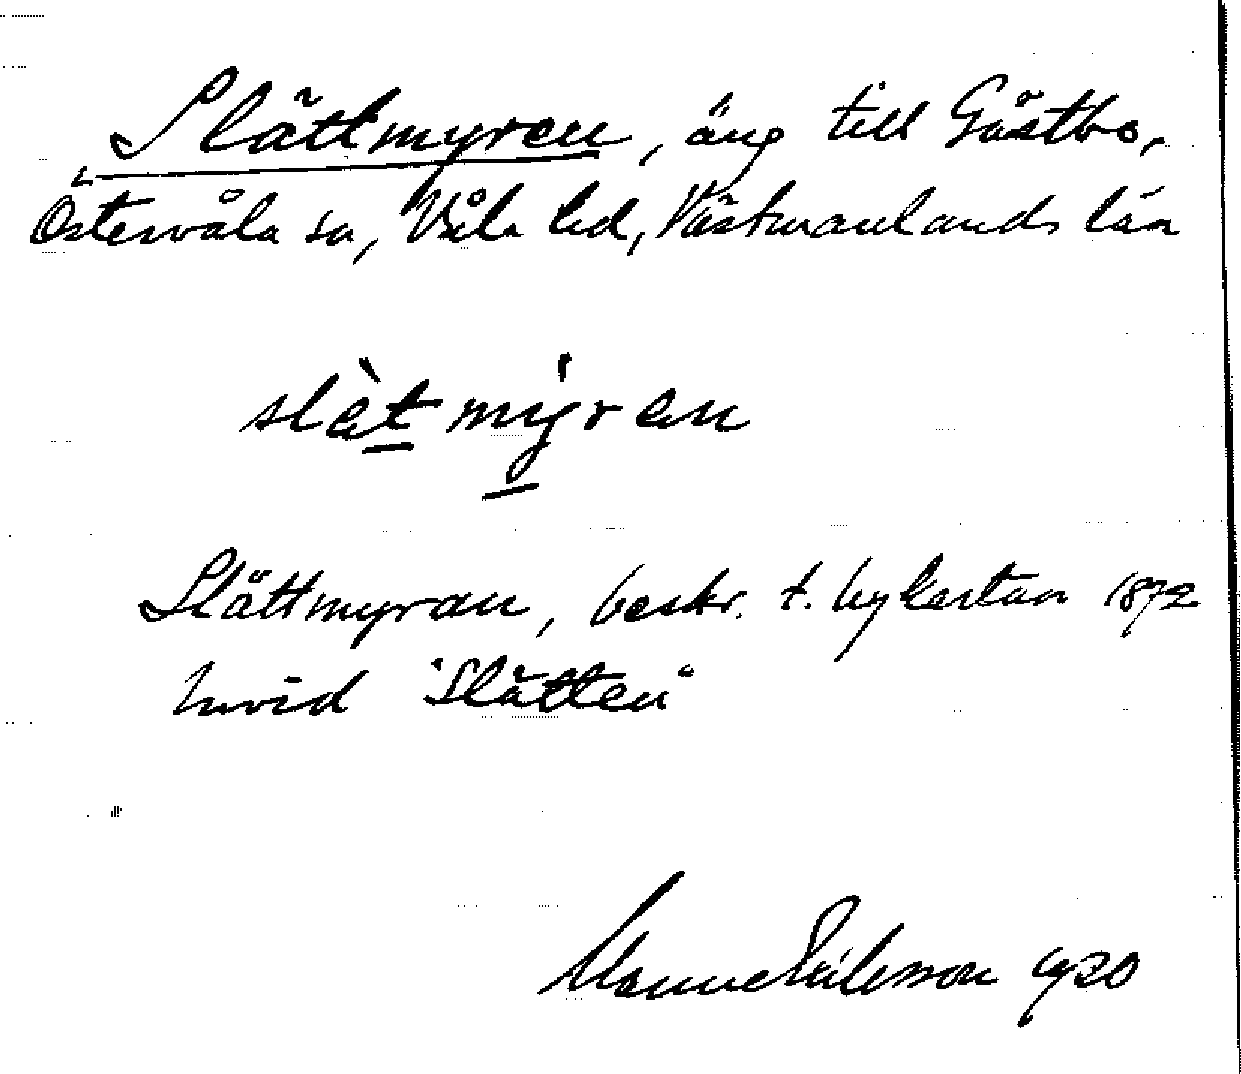 Slättmyren, äng till Gästbo,
Östervåla sn, Våla hd, Västmanlands län
slètmýren
Slättmyran, beskr. t. bykartan 1872
invid "Slätten"
Manne Eriksson 1920